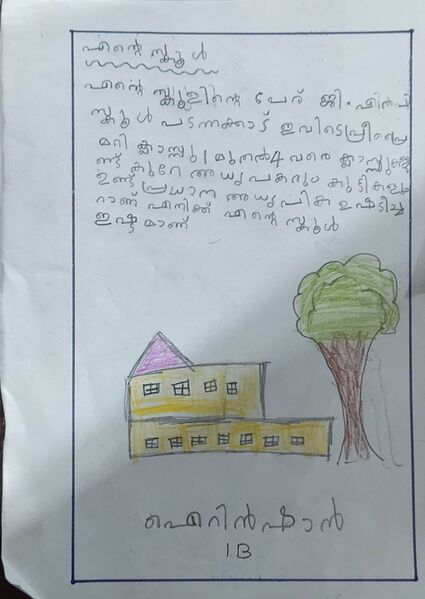 എന്റെ സ്കൂൾ
എന്റെ സ്കൂളിന്റെ പേര് ജി.എൽപി
സ്കൂൾ പടന്നക്കാട് ഇവിടെപ്രീപ്രൈ
മറി ക്ലാസ്സും 1 മുതൽ 4 വരെ ക്ലാസ്സുകളു
ണ്ട് കുറേ അധ്യപകരും കുട്ടികളും
ഉണ്ട് പ്രധാന അധ്യപിക ഉഷടീച്ച
റാണ് എനിക്ക് എന്റെ സ്കൂൾ
ഇഷ്ടമാണ്
ഐറിൻഷാൻ
1.B